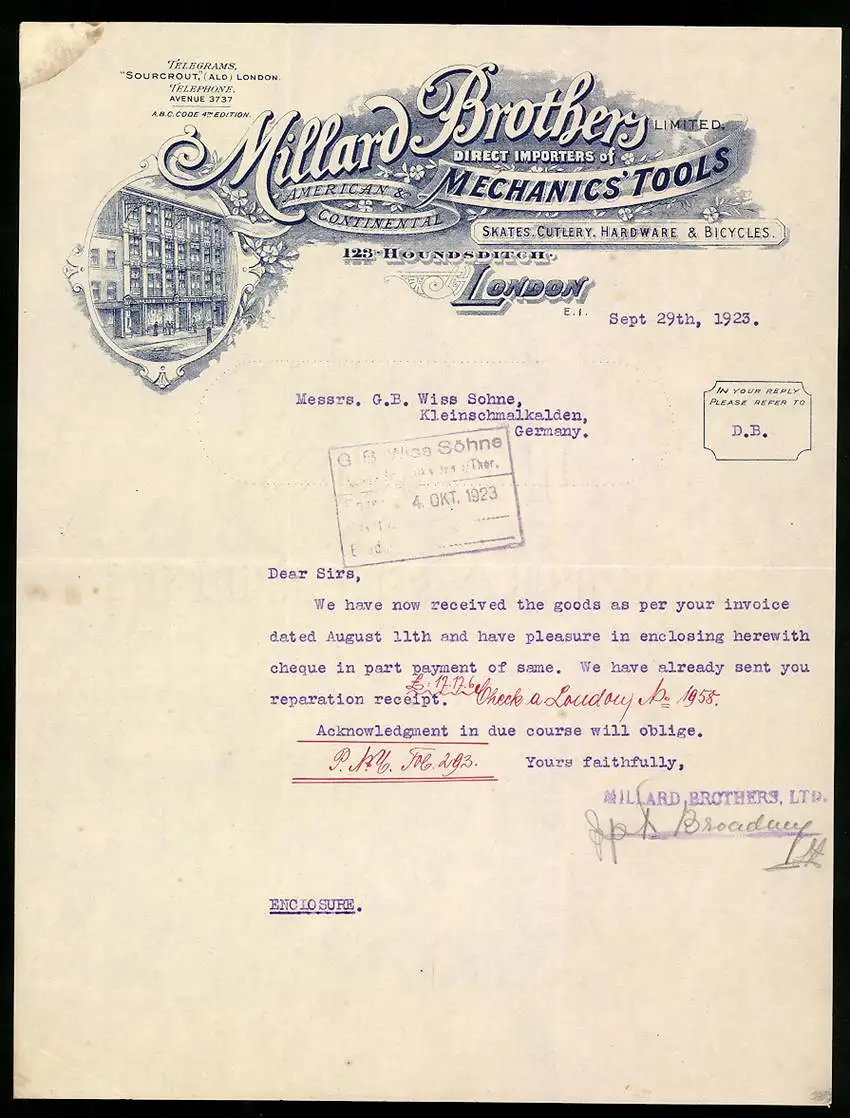 TELEGRAMS,
"SOURCROUT," (ALD) LONDON.
TELEPHONE,
AVENUE 3737
A.B.C. CODE 4TH EDITION.
Millard Brothers LIMITED.
DIRECT IMPORTERS of
AMERICAN &
CONTINENTAL
MECHANICS' TOOLS
SKATES, CUTLERY, HARDWARE & BICYCLES.
123 HOUNDSDITCH.
LONDON
E.1.
Sept 29th, 1923.
Messrs. G.B. Wiss Sohne,
Kleinschmalkalden,
Germany.
IN YOUR REPLY
PLEASE REFER TO
D.B.
G B Wiss Söhne
4. OKT. 1923
Dear Sirs,
We have now received the goods as per your invoice
dated August 11th and have pleasure in enclosing herewith
cheque in part payment of same. We have already sent you
reparation receipt. Check a London No 1958.
Acknowledgment in due course will oblige.
293.
Yours faithfully,
MILLARD BROTHERS, LTD.
ENCLOSURE.